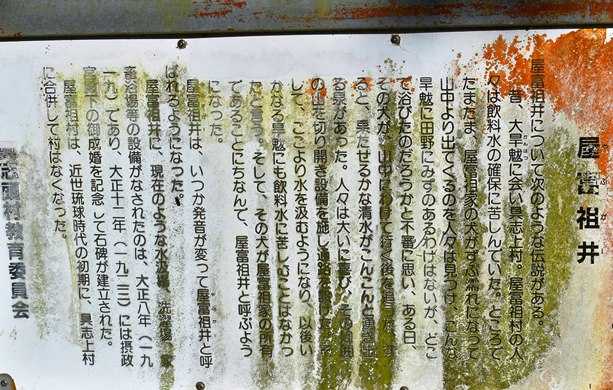 屋富祖井
屋富祖井について次のような伝説がある。
昔、大旱魃に会い具志上村。屋富祖村の人
々は飲料水の確保に苦しんでいた。ところで
たまたま、屋富祖家の犬がずぶ濡れになって
山中より出てくるのを人々は見つけ、こんな
旱魃に田野にみずのあるわけはないが、どこ
で浴びたのだろうかと不審に思い、ある日、
その犬が、山中にわけて行く後を追
ると、果たせるかな清水がこんこんと湧き出
る泉があった。人々は大いに喜び、その
の山を切り開き設備を施し通路を
して、ここより水を汲むようになり、以後い
かなる旱魃にも飲料水に苦しむことはなかっ
たと言う。そして、その犬が屋富祖家の所有
であることにちなんで、屋富祖井と呼ぶよう
になった。
屋富祖井は、いつか発音が変って屋富祖井と呼
ばれるようになった。
屋富祖井に、現在のような水汲場、洗濯場、家
畜浴場等の設備がなされたのは、大正八年(一九
一九)であり、大正十二年(一九二三)には摂政
宮殿下の御成婚を記念して石碑が建立された。
屋富祖村は、近世琉球時代の初期に、具志上村
に合併して村はなくなった。
頭村教育委員会